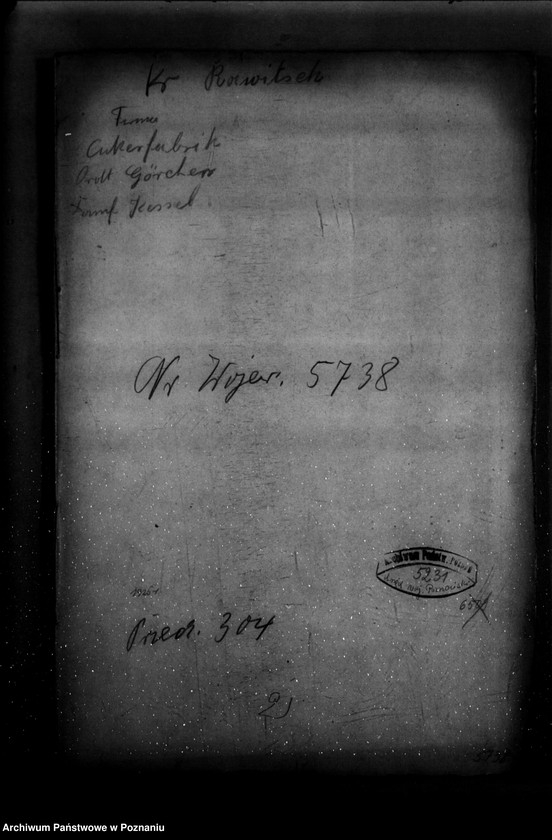 Kr Rawitsch
Firma
Cukerfabrik
Görchen
Dampf Kessel
Nr Wojew. 5738
Archiwum Państw. Poznań
5231
Urząd woj. Poznański
Pried. 304
21
5738
Archiwum Państwowe w Poznaniu